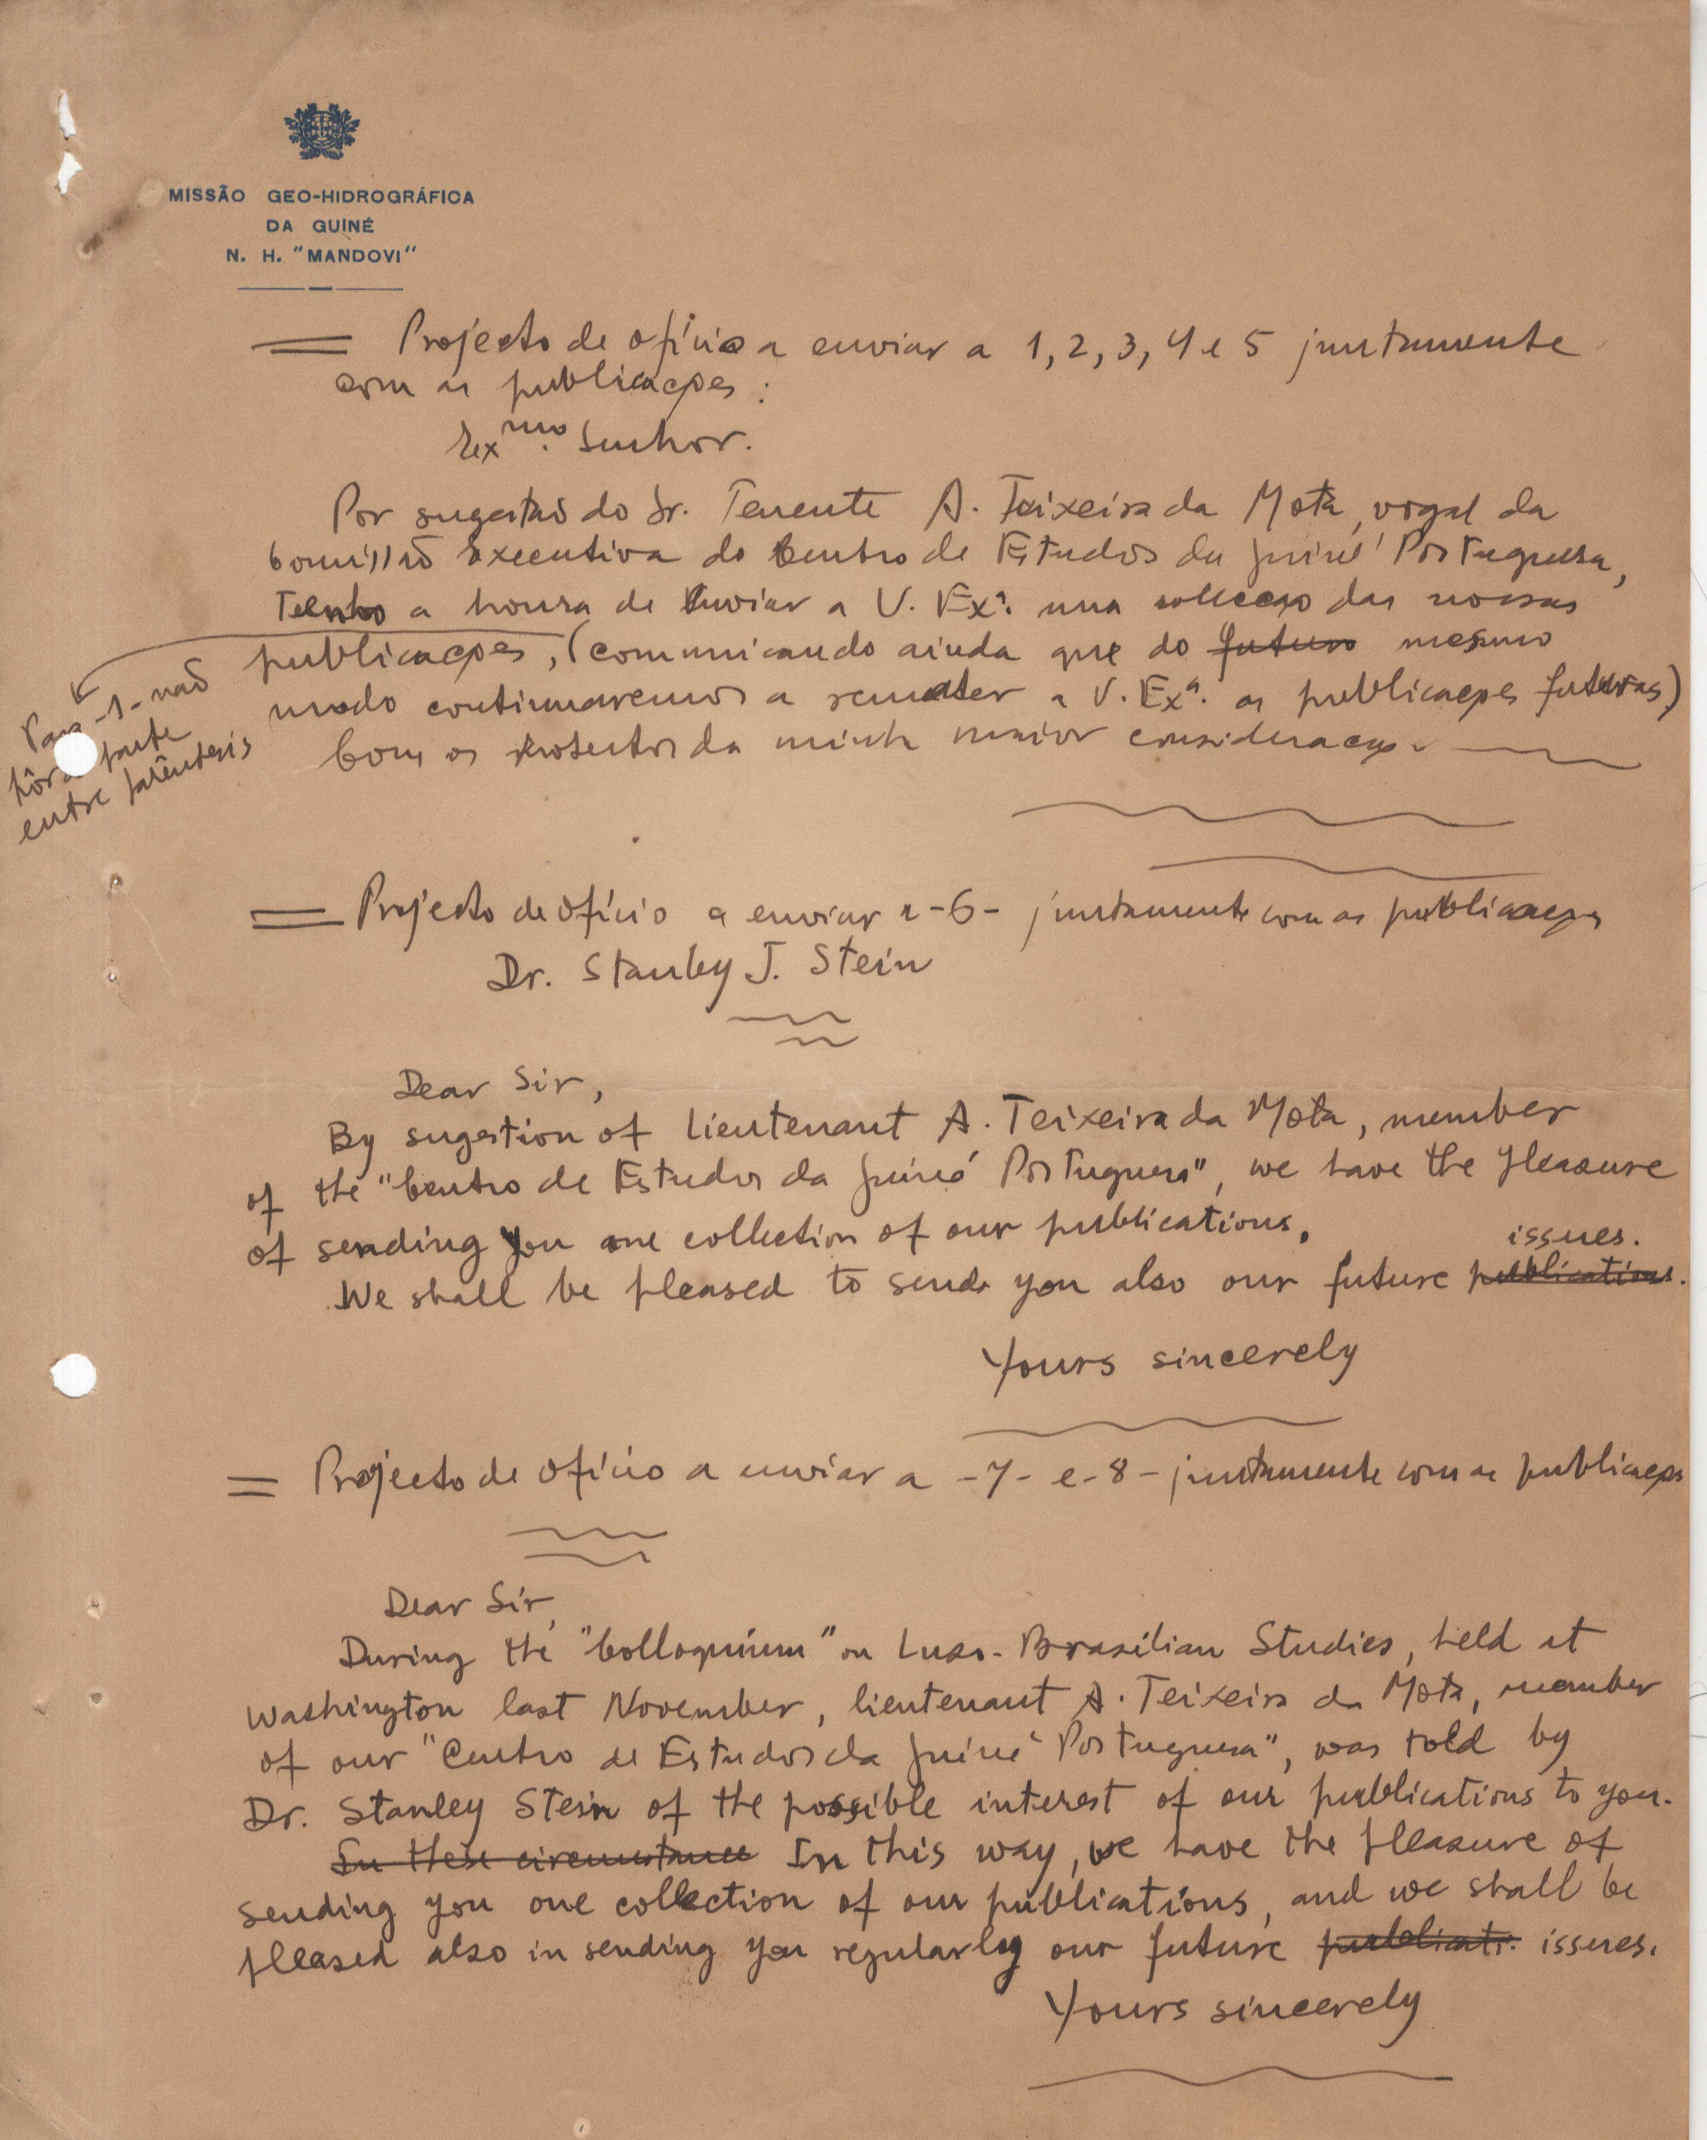 MISSÃO GEO-HIDROGRÁFICA
DA GUINÉ
N. H. "MANDOVI"
= Projecto de ofício a enviar a 1, 2, 3, 4 e 5 juntamente
com as publicações:
Exmo. Senhor.
Por sugestão do Sr. Tenente A. Teixeira da Mota, vogal da
Comissão Executiva do Centro de Estudos da Guiné Portuguesa,
Tenho a honra de Enviar a V. Exª. uma colecção das nossas
publicações, (comunicando ainda que do futuro mesmo
modo continuaremos a remeter a V. Exª. as publicações futuras)
Com os protestos da minha maior consideração.
Para -1- não
pôr a parte
entre parêntesis
= Projecto de ofício a enviar a -6- juntamente com as publicações
Dr. Stanley J. Stein
Dear Sir,
By sugestion of Lieutenant A. Teixeira da Mota, member
of the "Centro de Estudos da Guiné Portuguesa", we have the pleasure
of sending you one collection of our publications.
issues.
We shall be pleased to send you also our future publications.
Yours sincerely
= Projecto de ofício a enviar a -7- e -8- juntamente com as publicações
Dear Sir,
During the "Colloquium" on Luso-Brasilian Studies, held at
Washington last November, lieutenant A. Teixeira da Mota, member
of our "Centro de Estudos da Guiné Portuguesa", was told by
Dr. Stanley Stein of the possible interest of our publications to you.
In these circumstance In this way, we have the pleasure of
sending you one collection of our publications, and we shall be
pleased also in sending you regularly our future publicati. issues.
Yours sincerely